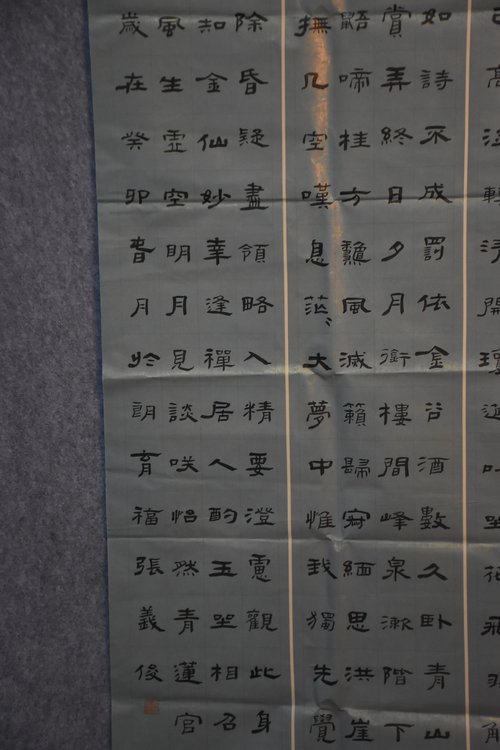 高轉清開瓊筵以坐花飛羽觴
如詩不成罰依金谷酒數久臥青山
賞弄終日夕月銜樓間峰泉漱階下
鼯啼桂方龝風滅籟歸寂緬思洪崖
撫几空嘆息茫〻大夢中惟我獨先覺
除昏疑盡領略入精要澄慮觀此身
知金仙妙幸逢禪居人酌玉坐相召
風生虛空明月見談咲怡然青蓮宮
歲在癸卯旾月於朗育福張義俊